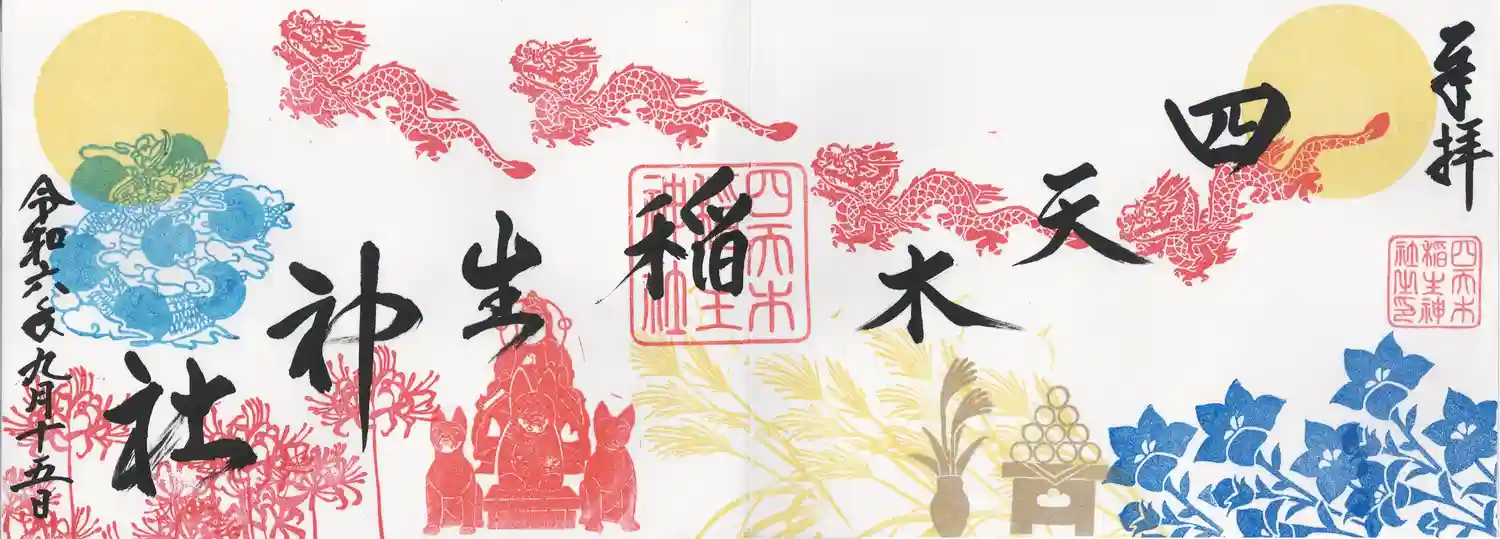 奉拝
四天木
稲生神
社之印
四天木稲生神社
四天木
稲生
神社
令和六年九月十五日